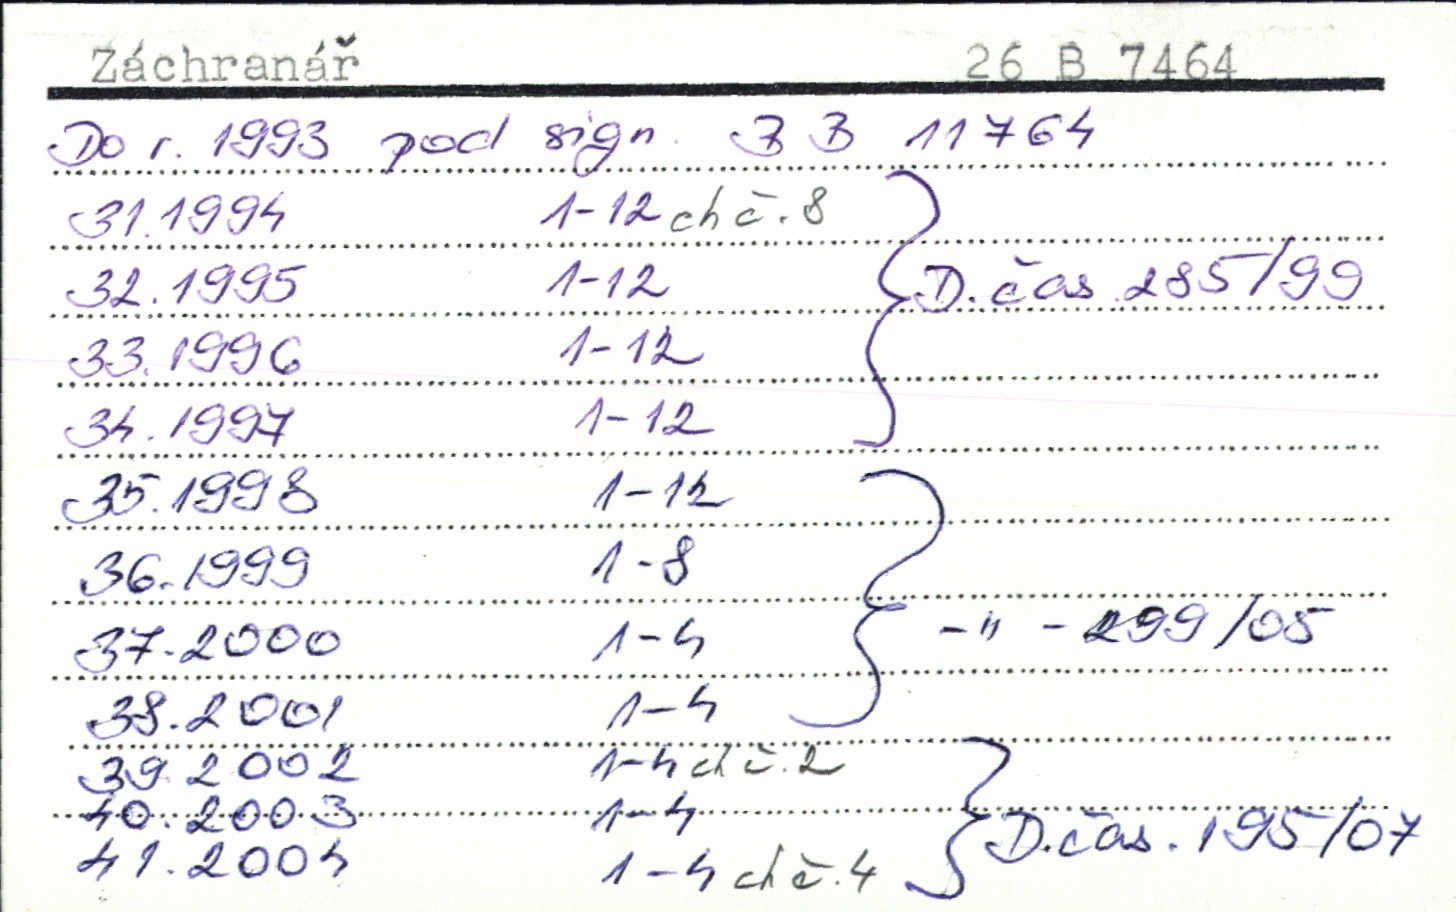 Záchranář 26 B 7464
Do r. 1993 pod sign. B 11764
31.1994 1-12 ch č. 8
32.1995 1-12 D. čas. 285/99
33.1996 1-12
34.1997 1-12
35.1998 1-12
36.1999 1-8
37.2000 1-4 -"- 299/05
38.2001 1-4
39.2002 1-4 ch č. 2
40.2003 1-4 D. čas. 195/07
41.2004 1-4 ch č. 4